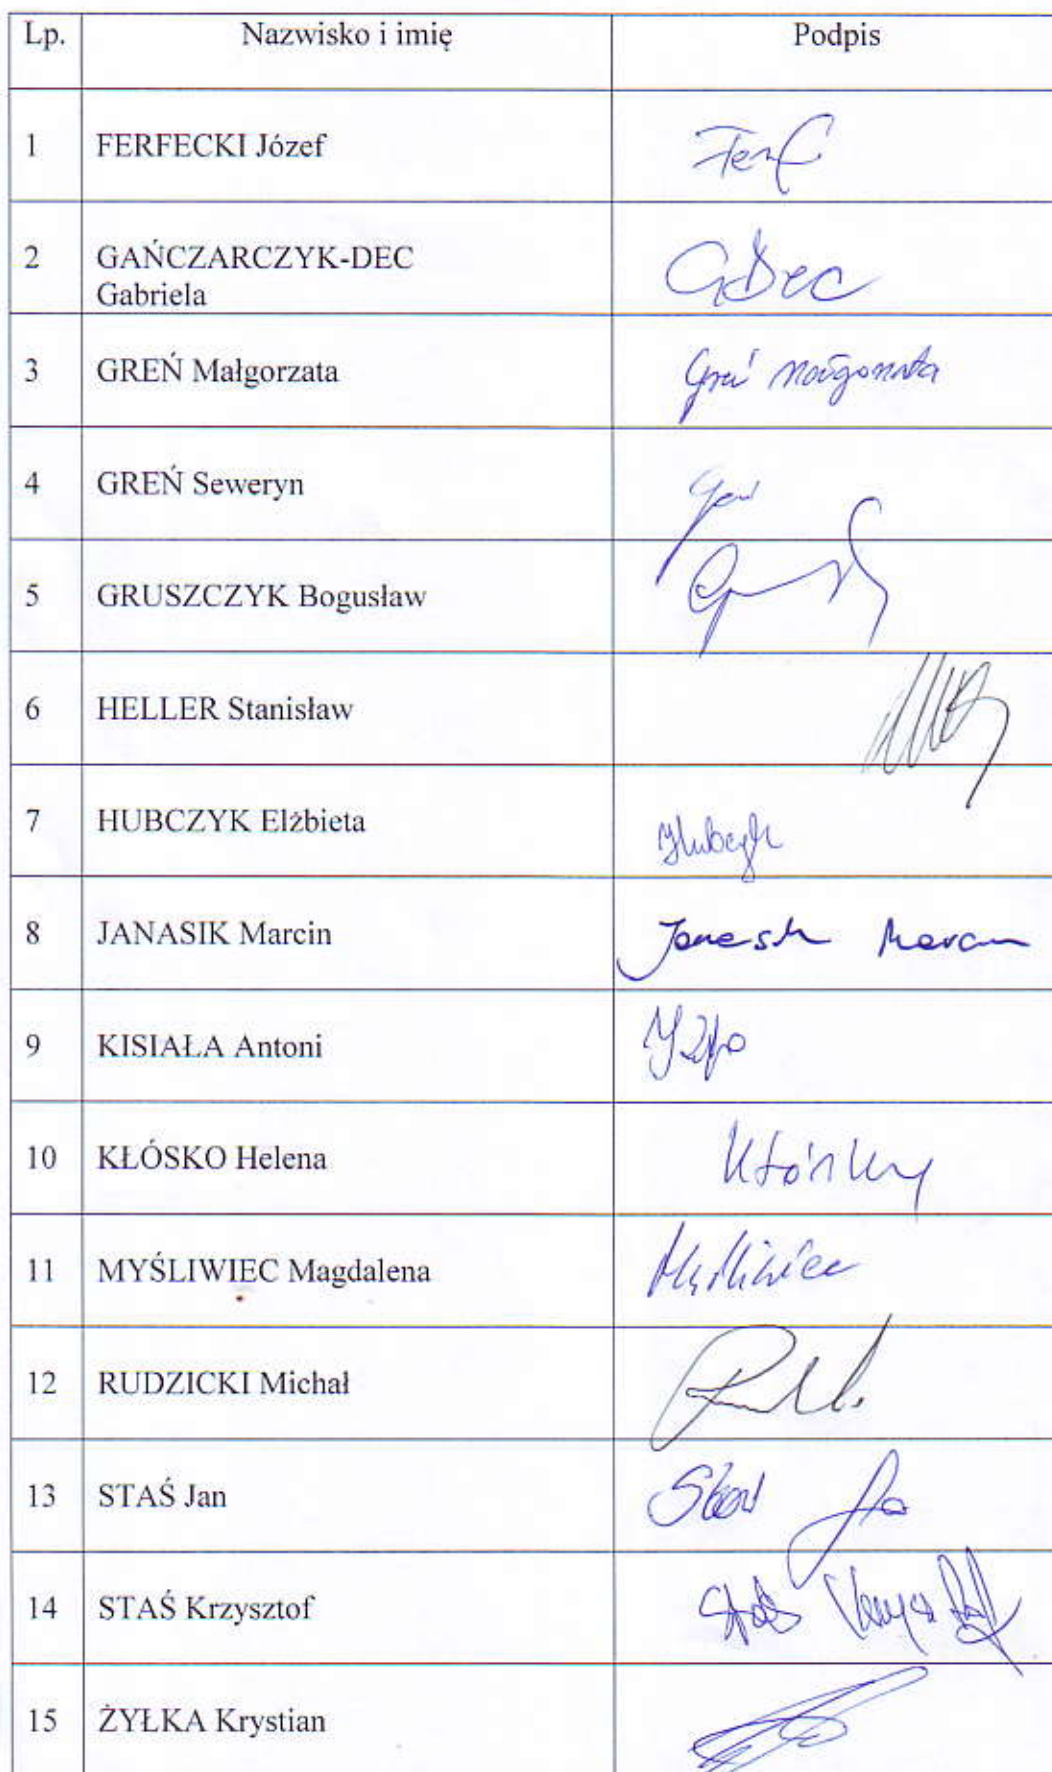 Lp. Nazwisko i imię Podpis
1 FERFECKI Józef Ferf
2 GAŃCZARCZYK-DEC
Gabriela GDec
3 GREŃ Małgorzata Greń Małgorzata
4 GREŃ Seweryn Greń
5 GRUSZCZYK Bogusław
6 HELLER Stanisław
7 HUBCZYK Elżbieta Hubczyk
8 JANASIK Marcin Janasik Marcin
9 KISIAŁA Antoni
10 KŁÓSKO Helena
11 MYŚLIWIEC Magdalena Myśliwiec
12 RUDZICKI Michał
13 STAŚ Jan Staś Jan
14 STAŚ Krzysztof Staś Krzysztof
15 ŻYŁKA Krystian